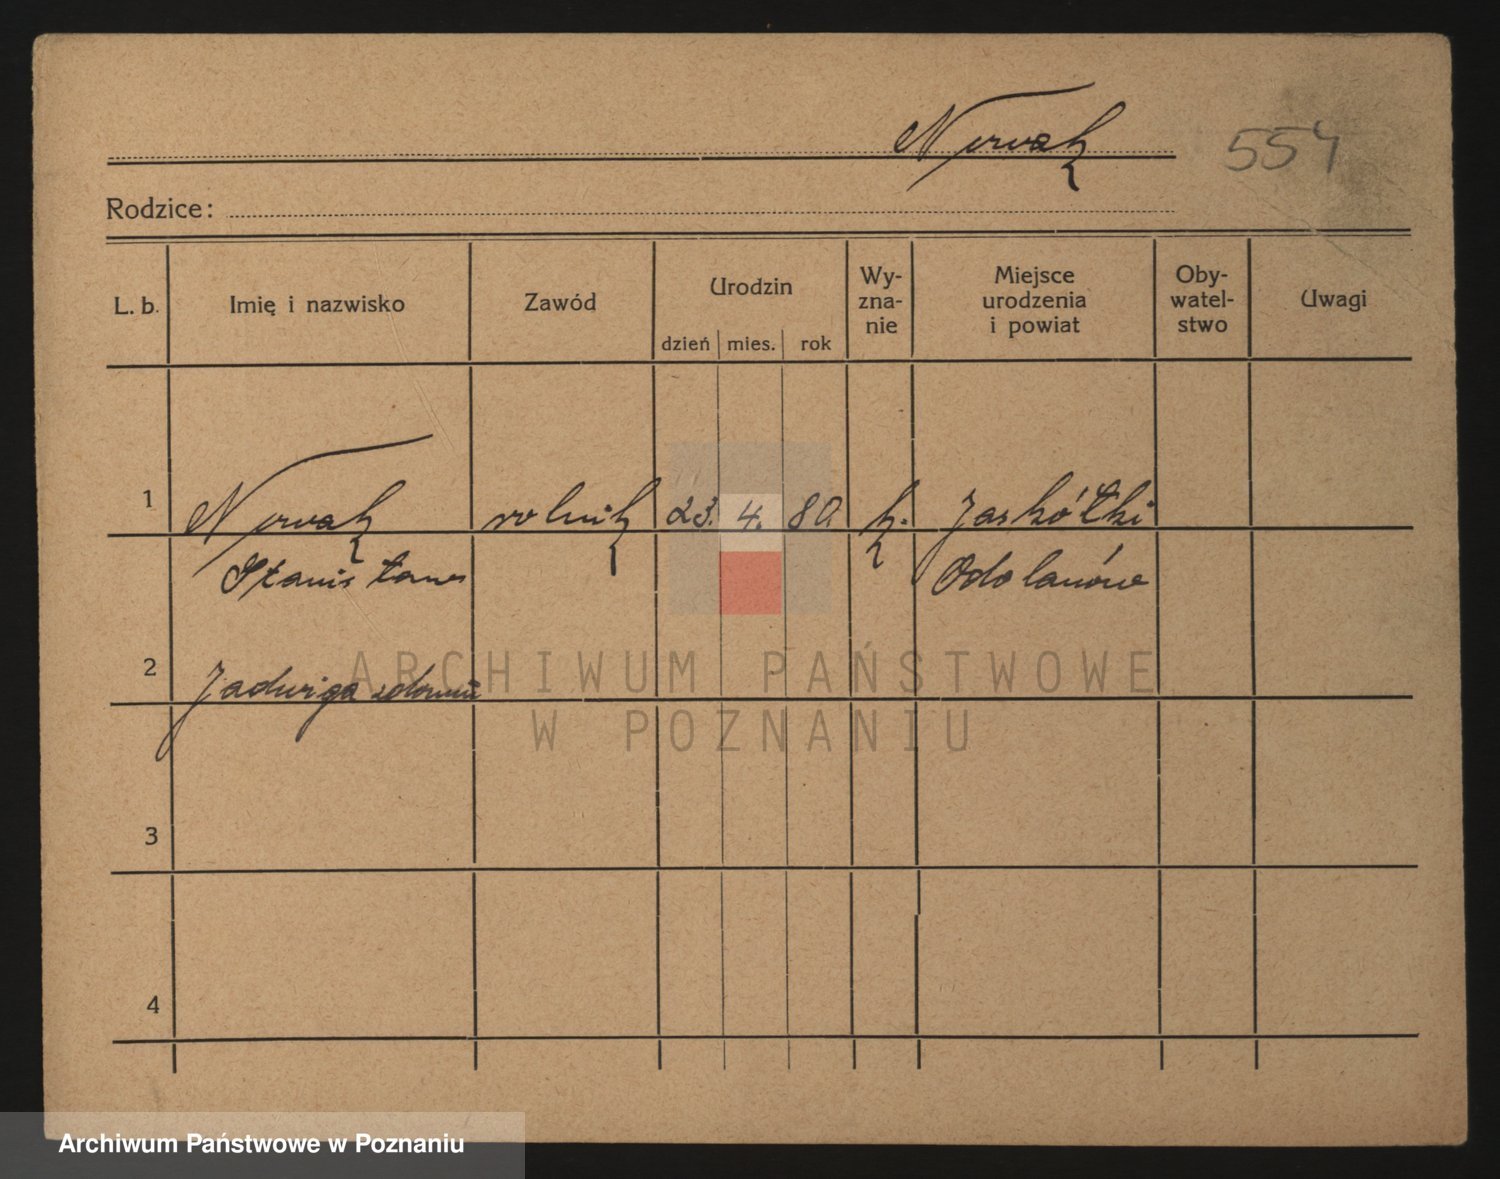 Nowak 554
Rodzice:
L. b. Imię i nazwisko Zawód Urodzin dzień mies. rok Wy-zna-nie Miejsce urodzenia i powiat Oby-watel-stwo Uwagi
1 Nowak rolnik 23. 4. 80 k. Jaskółki
Stanisław Odolanów
2 Jadwiga
3
4
ARCHIWUM PAŃSTWOWE
W POZNANIU
Archiwum Państwowe w Poznaniu